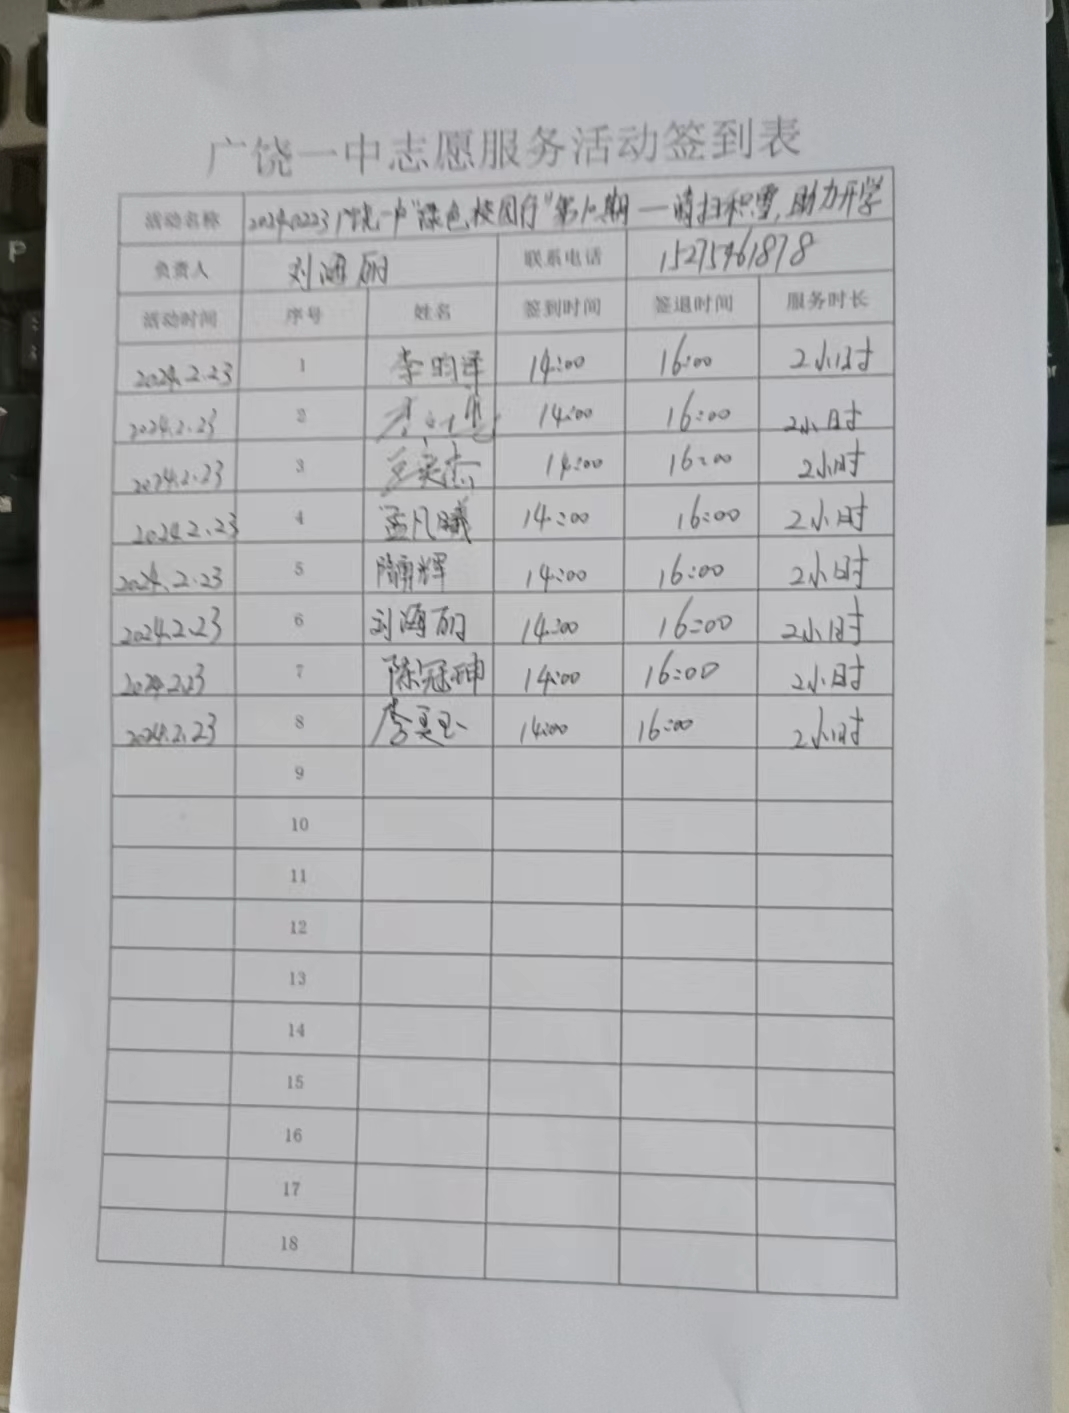 广饶一中志愿服务活动签到表
活动名称 20240223广饶一中"绿色校园行"第 期——清扫积雪,助力开学
负责人 刘海丽 联系电话 15275461878
活动时间 序号 姓名 签到时间 签退时间 服务时长
2024.2.23 1 李昀泽 14:00 16:00 2小时
2024.2.23 2 14:00 16:00 2小时
2024.2.23 3 14:00 16:00 2小时
2024.2.23 4 孟凡曦 14:00 16:00 2小时
2024.2.23 5 隋 辉 14:00 16:00 2小时
2024.2.23 6 刘海丽 14:00 16:00 2小时
2024.2.23 7 陈冠坤 14:00 16:00 2小时
2024.2.23 8 李 14:00 16:00 2小时
9
10
11
12
13
14
15
16
17
18
P